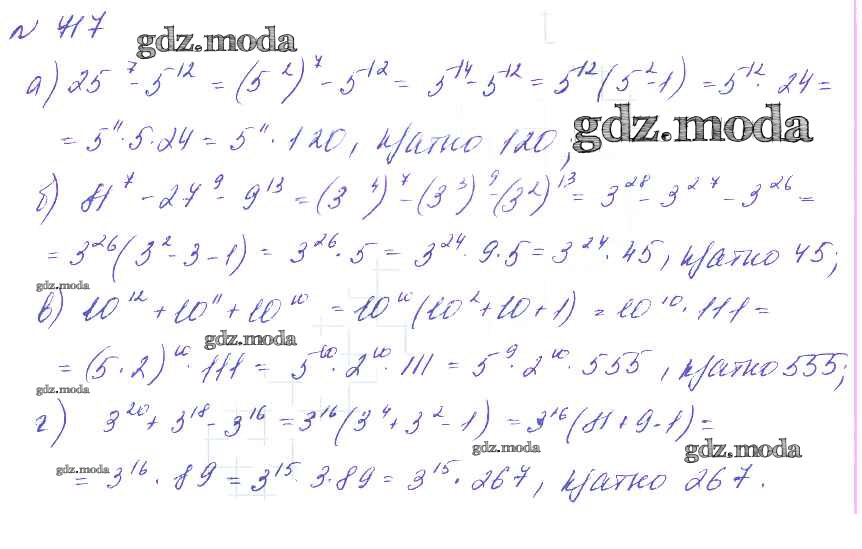 № 717
gdz.moda
а) 25⁷ - 5¹² = (5²)⁷ - 5¹² = 5¹⁴ - 5¹² = 5¹²(5² - 1) = 5¹² · 24 =
= 5¹¹ · 5 · 24 = 5¹¹ · 120, кратно 120;
gdz.moda
б) 81⁷ - 27⁹ - 9¹³ = (3⁴)⁷ - (3³)⁹ - (3²)¹³ = 3²⁸ - 3²⁷ - 3²⁶ =
= 3²⁶(3² - 3 - 1) = 3²⁶ · 5 = 3²⁴ · 9 · 5 = 3²⁴ · 45, кратно 45;
gdz.moda
в) 10¹² + 10¹¹ + 10¹⁰ = 10¹⁰(10² + 10 + 1) = 10¹⁰ · 111 =
gdz.moda
= (5 · 2)¹⁰ · 111 = 5¹⁰ · 2¹⁰ · 111 = 5⁹ · 2¹⁰ · 555, кратно 555;
gdz.moda
г) 3²⁰ + 3¹⁸ - 3¹⁶ = 3¹⁶(3⁴ + 3² - 1) = 3¹⁶(81 + 9 - 1) =
gdz.moda
gdz.moda
gdz.moda
= 3¹⁶ · 89 = 3¹⁵ · 3 · 89 = 3¹⁵ · 267, кратно 267.